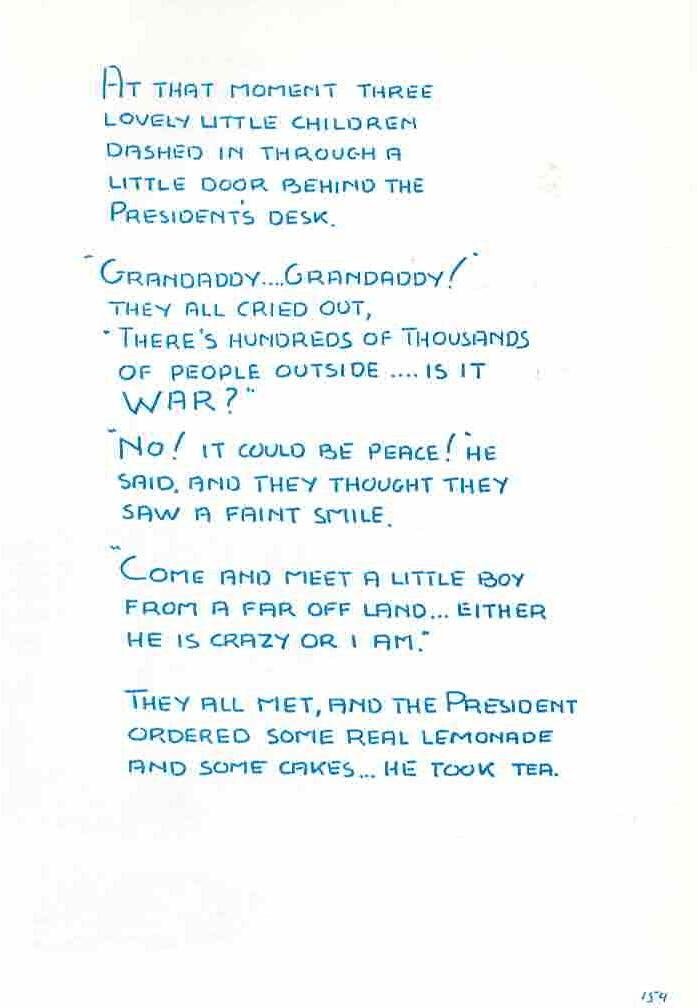 AT THAT MOMENT THREE
LOVELY LITTLE CHILDREN
DASHED IN THROUGH A
LITTLE DOOR BEHIND THE
PRESIDENT'S DESK.
"GRANDADDY....GRANDADDY!"
THEY ALL CRIED OUT,
"THERE'S HUNDREDS OF THOUSANDS
OF PEOPLE OUTSIDE .... IS IT
WAR?"
"NO! IT COULD BE PEACE!" HE
SAID, AND THEY THOUGHT THEY
SAW A FAINT SMILE.
"COME AND MEET A LITTLE BOY
FROM A FAR OFF LAND... EITHER
HE IS CRAZY OR I AM."
THEY ALL MET, AND THE PRESIDENT
ORDERED SOME REAL LEMONADE
AND SOME CAKES... HE TOOK TEA.
154